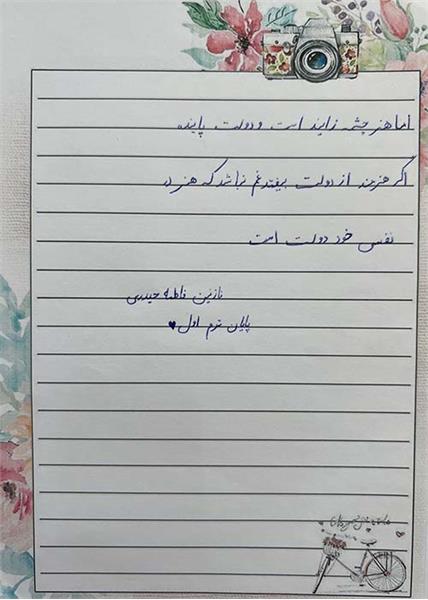 اما هنر چشمه زاینده است و دولت پاینده
اگر هنرمند از دولت بیفتد غم نباشد که هنر در
نفس خود دولت است
نازنین فاطمه حیدری
پایان ترم اول ♥